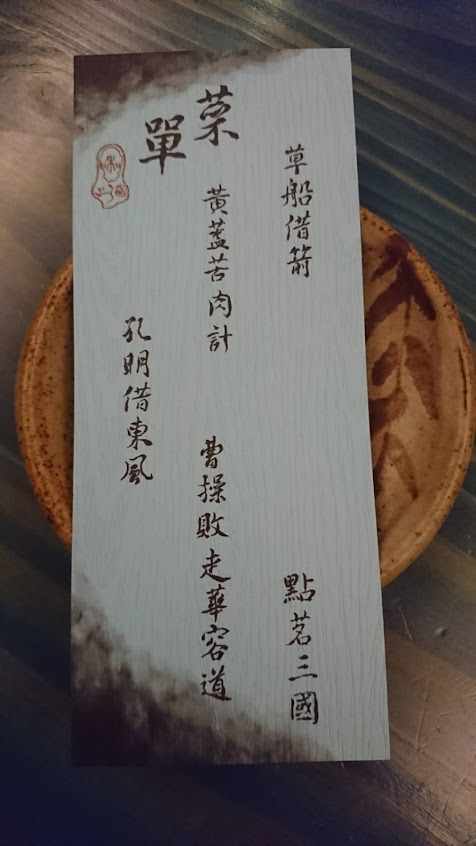 菜單
草船借箭
黃蓋苦肉計
孔明借東風
曹操敗走華容道
點茗三國